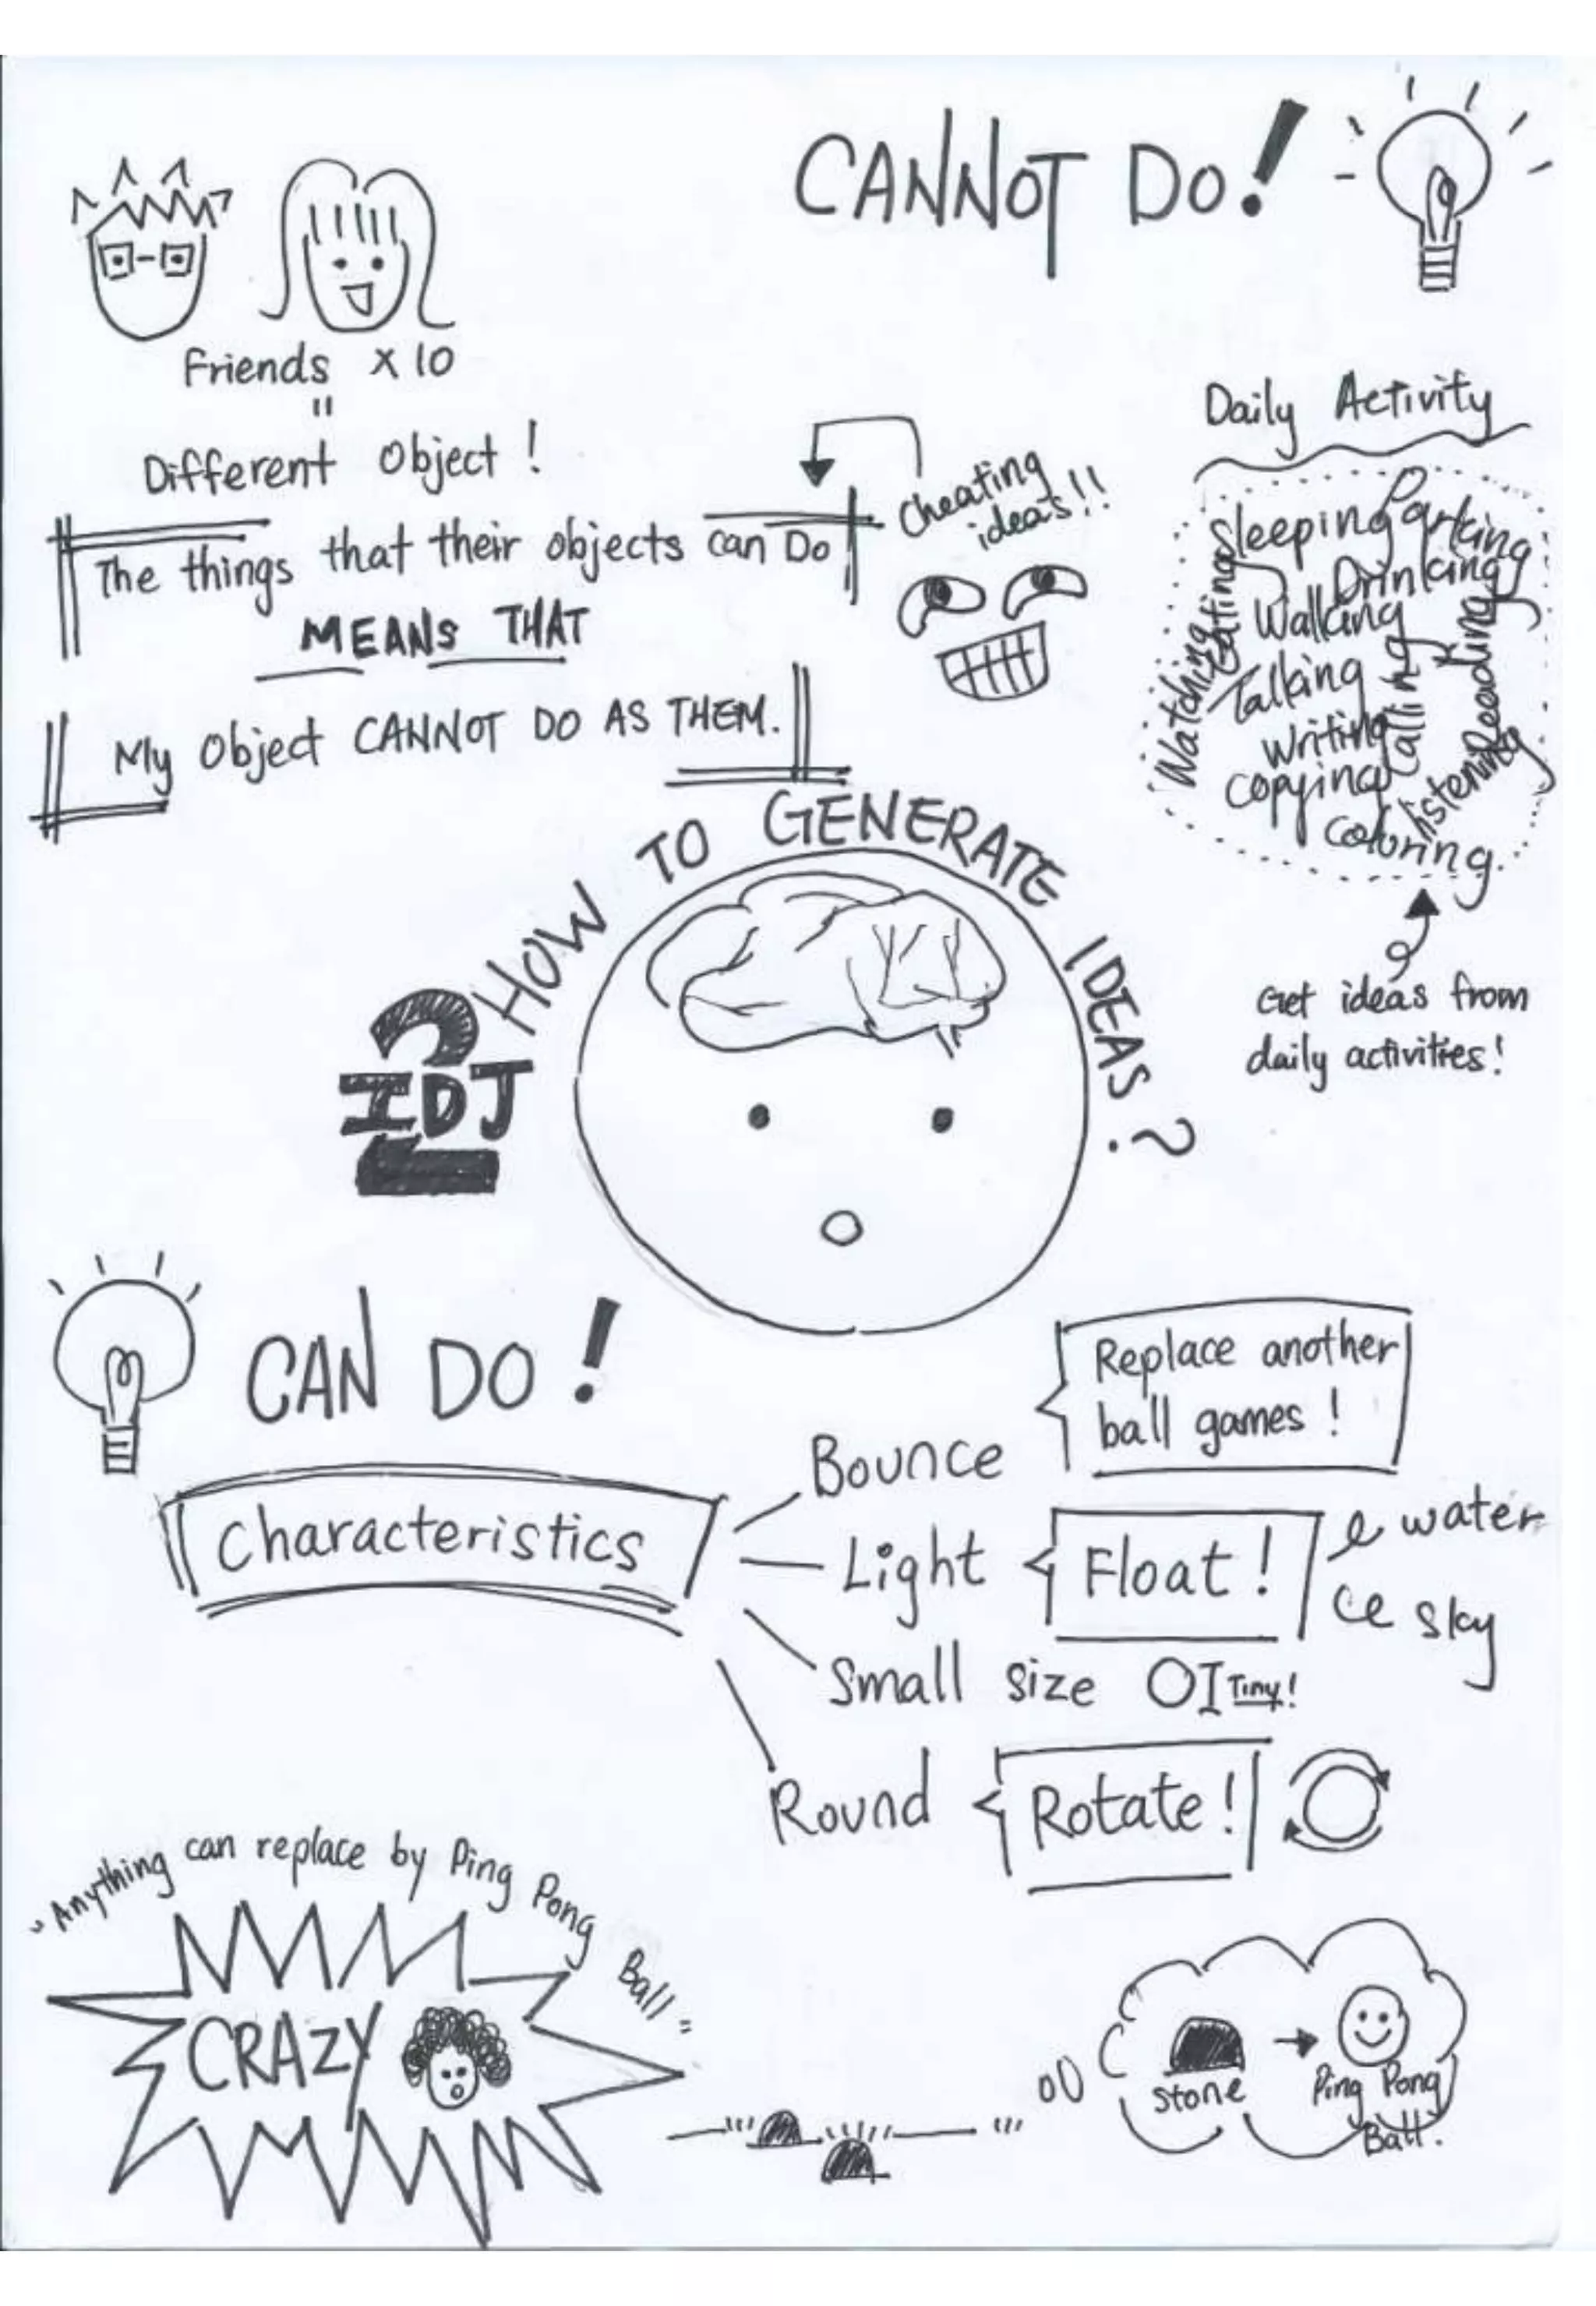 CANNOT DO!
Friends x 10
"
Different Object!
The things that their objects can Do
MEANS THAT
My Object CANNOT DO AS THEM.
Cheating
ideas!!
Daily Activity
Sleeping
Parking
Drinking
Eating
Walking
Watching
Talking
Calling
Reading
Writing
Copying
listening
Colouring.
Get ideas from
daily activities!
HOW TO GENERATE IDEAS?
IDJ
2
CAN DO!
Characteristics
Bounce
Replace another
ball games!
Light
Float!
water
sky
Small size
Tiny!
Round
Rotate!
"Anything can replace by Ping Pong Ball"
CRAZY
stone
Ping Pong
Ball.